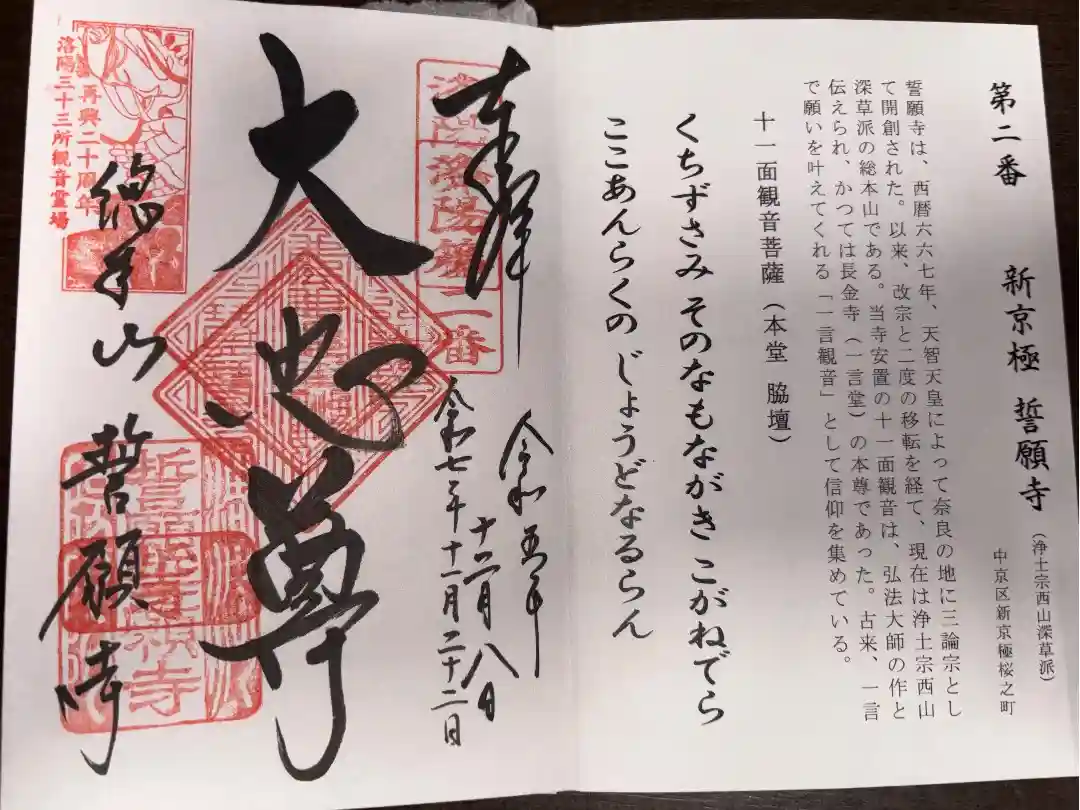 第二番 新京極 誓願寺
（浄土宗西山深草派）
中京区新京極桜之町
誓願寺は、西暦六六七年、天智天皇によって奈良の地に三論宗とし
て開創された。以来、改宗と二度の移転を経て、現在は浄土宗西山
深草派の総本山である。当寺安置の十一面観音は、弘法大師の作と
伝えられ、かつては長金寺（一言堂）の本尊であった。古来、一言
で願いを叶えてくれる「一言観音」として信仰を集めている。
十一面観音菩薩（本堂 脇壇）
くちずさみ そのなもながき こがねでら
ここあんらくの じょうどなるらん
奉拝
令和五年
十二月八日
令和七年十一月二十二日
大悲尊
総本山 誓願寺
再興二十周年
洛陽三十三所観音霊場